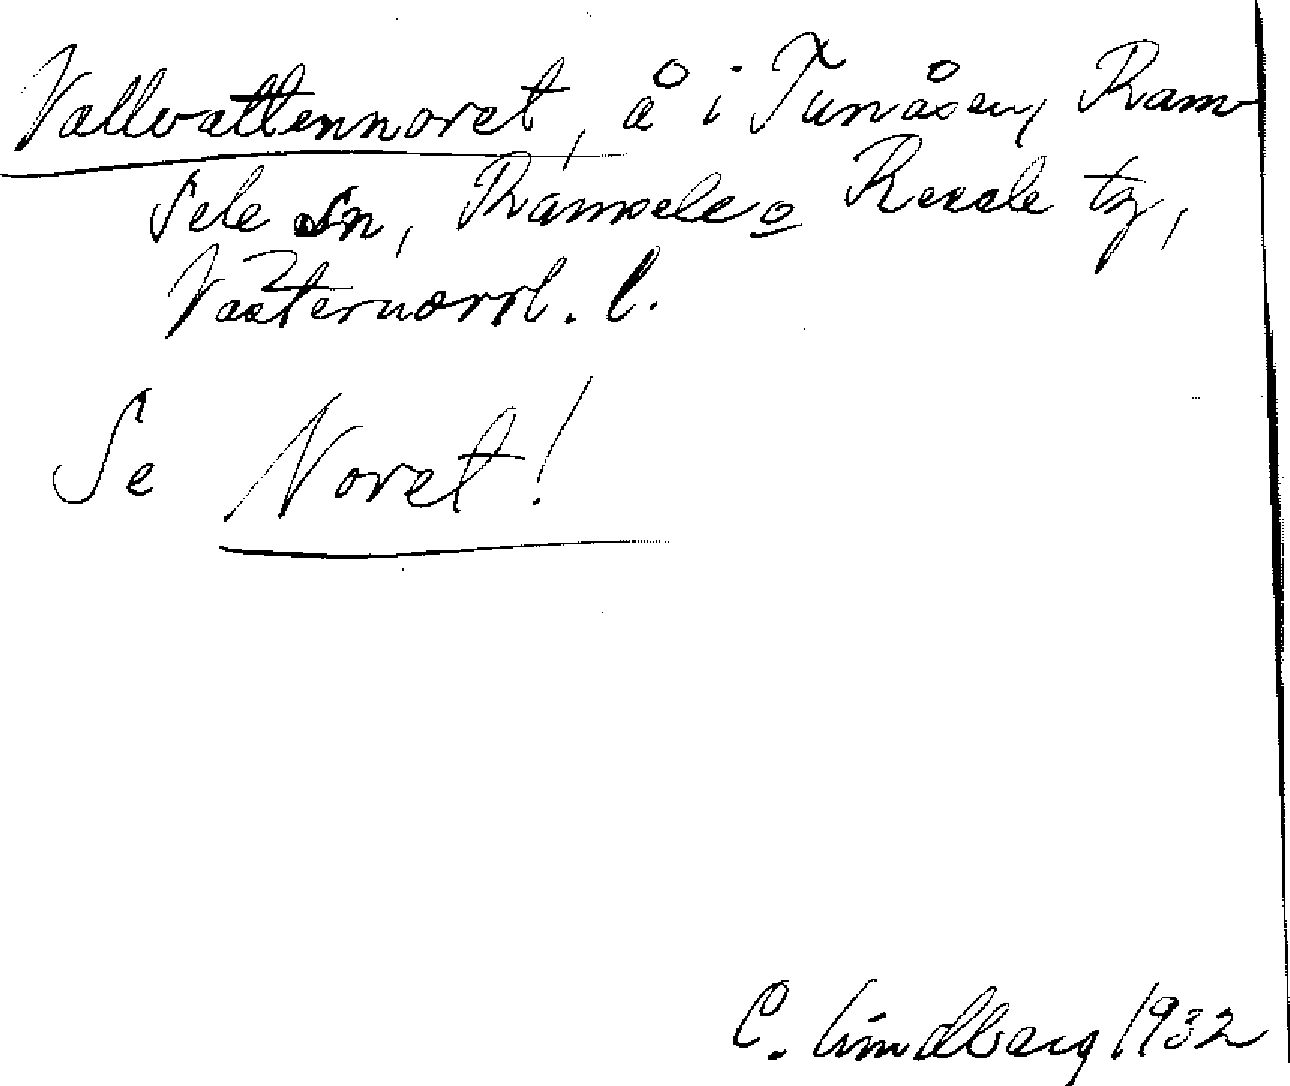 Vallvattennoret, å i Tunåsen, Ram-
sele sn, Ramsele o Resele tg,
Västernorrl. l.
Se Noret!
C. Lindberg 1932